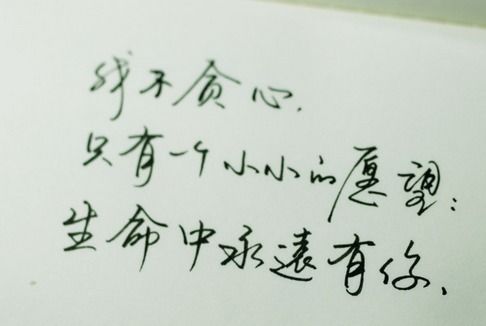 我不贪心.
只有一个小小的愿望:
生命中永遠有你.